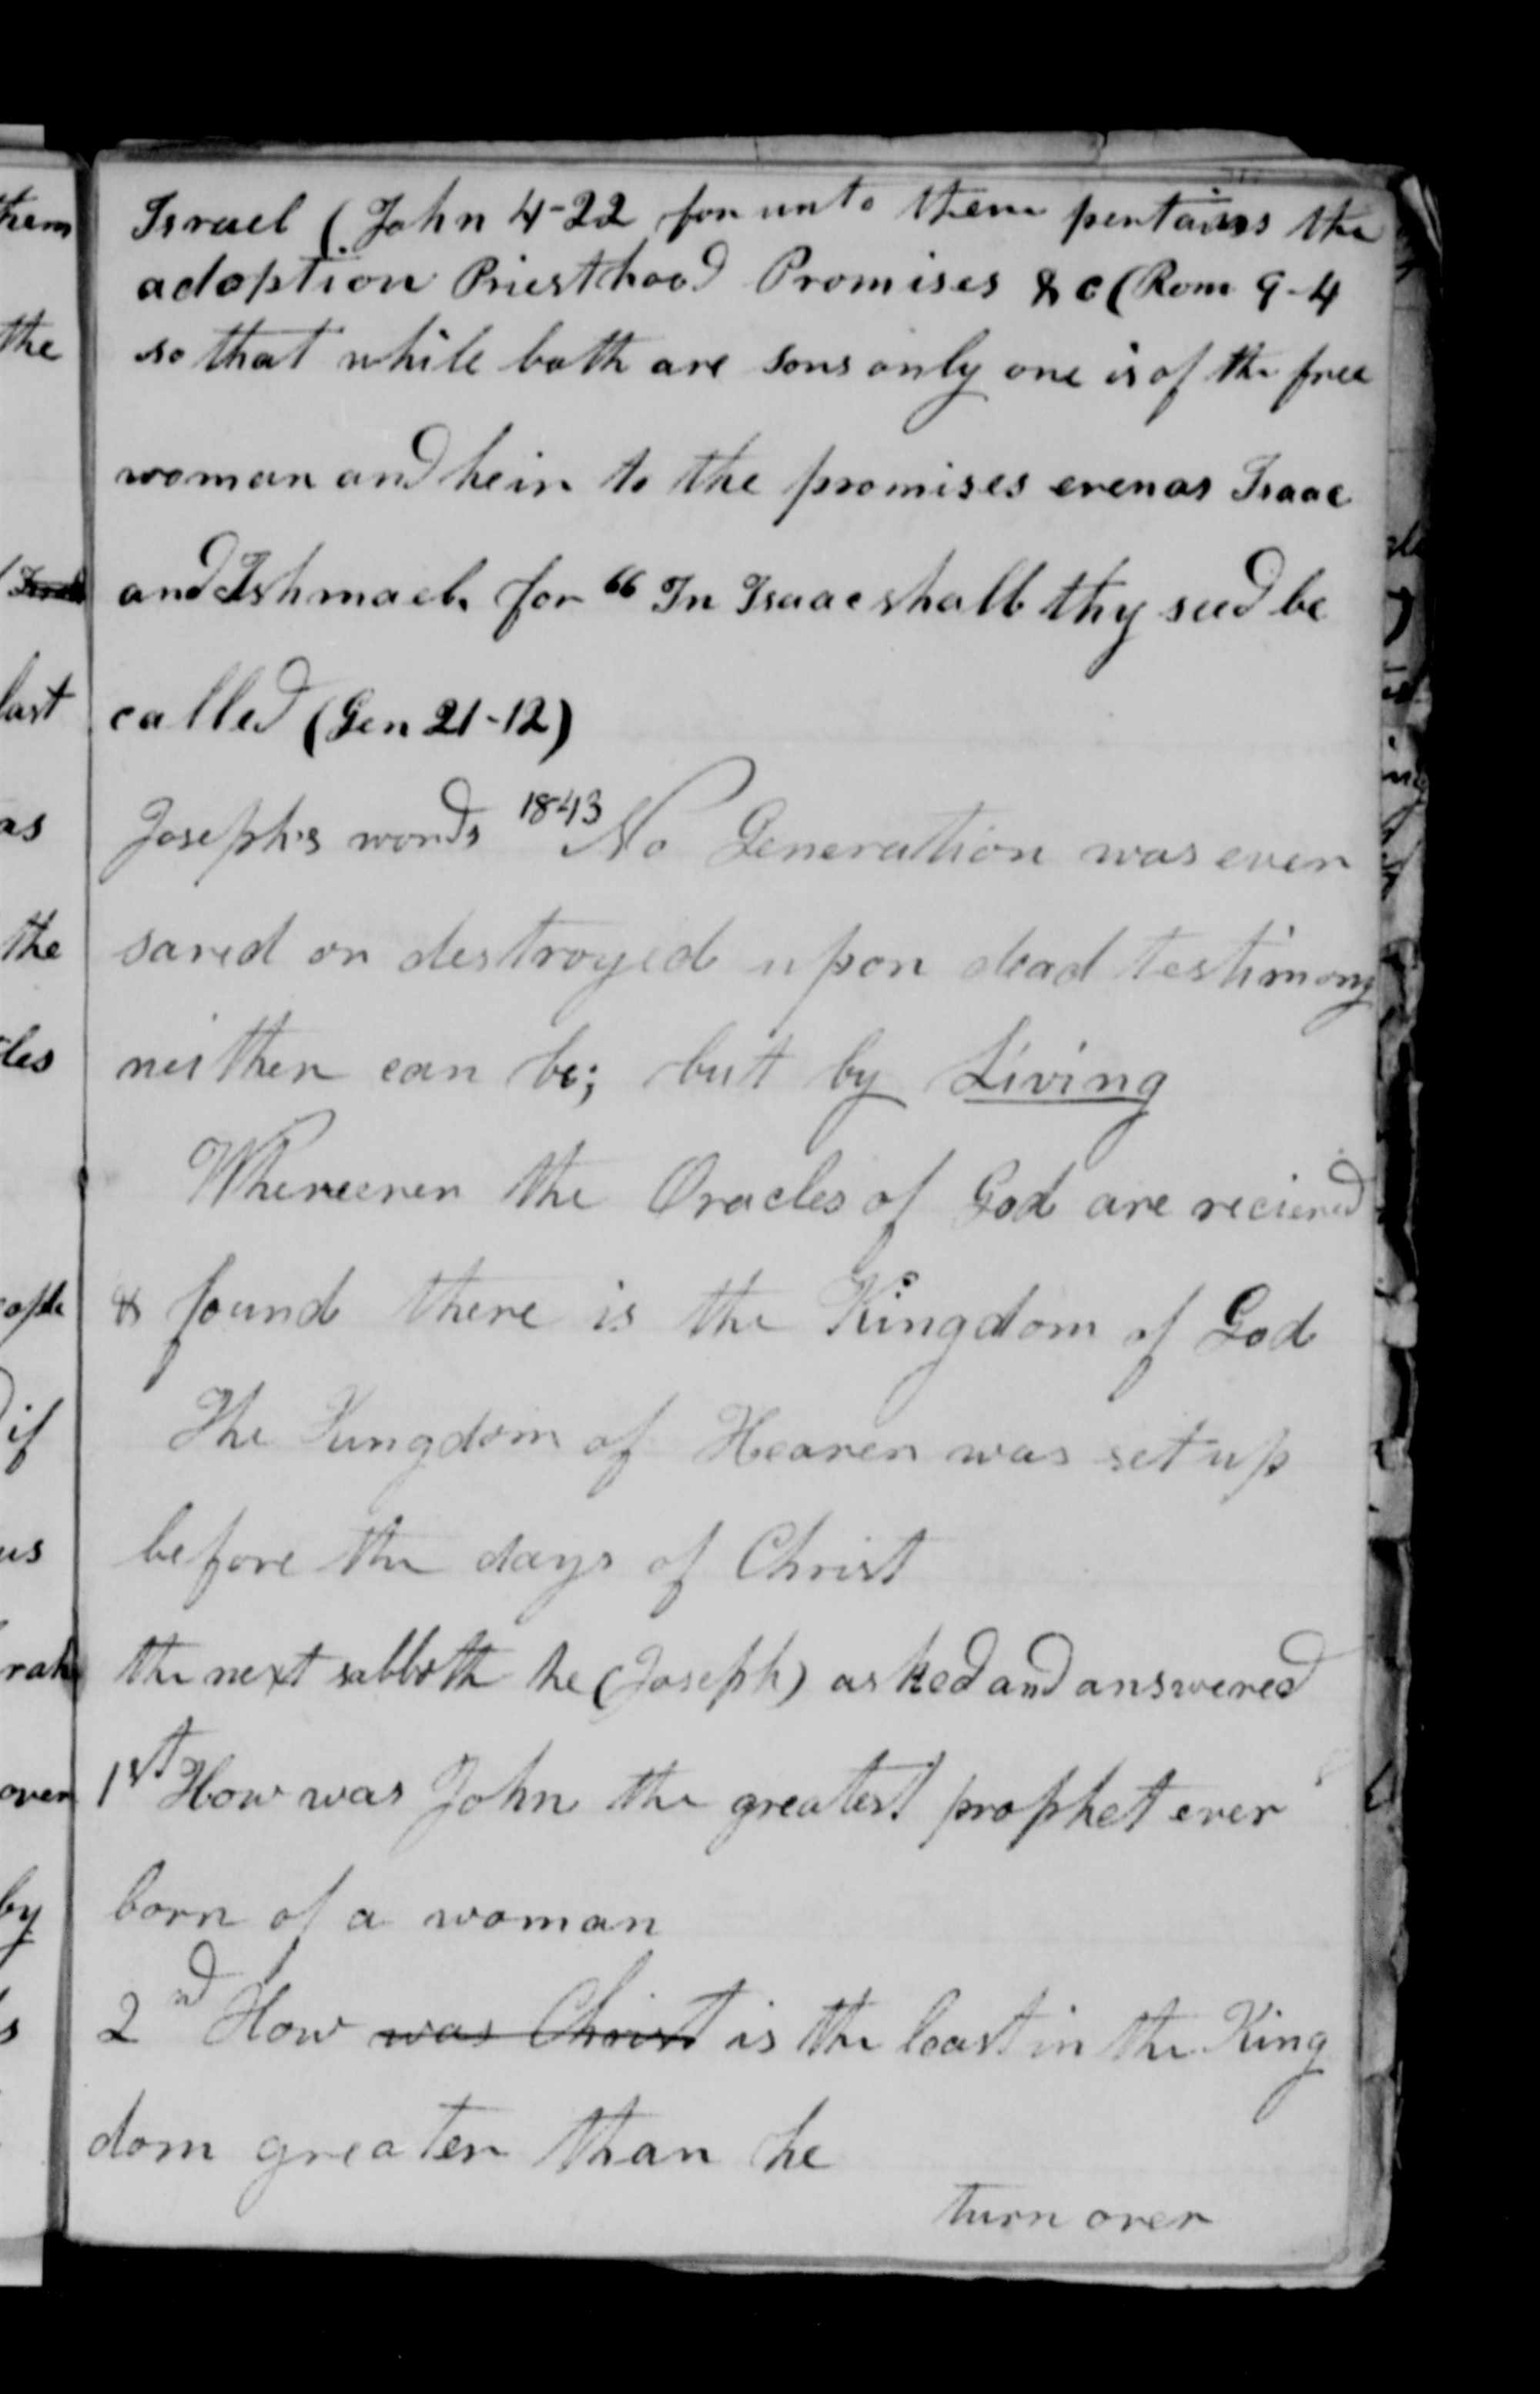 Israel (John 4-22 for unto them pertains the
adoption Priesthood Promises &c (Rom 9-4
so that while both are sons only one is of the free
woman and heir to the promises even as Isaac
and Ishmael. for "In Isaac shall thy seed be
called (Gen 21-12)
Joseph's words 1843 No Generation was ever
saved or destroyed upon dead testimony
neither can be; but by Living
Whereever the Oracles of God are recieved
& found there is the Kingdom of God
The Kingdom of Heaven was set up
before the days of Christ
the next sabboth he (Joseph) asked and answered
1st How was John the greatest prophet ever
born of a woman
2nd How was Christ is the least in the King
dom greater than he
turn over
them
the
last
as
the
eople
if
us
over
by